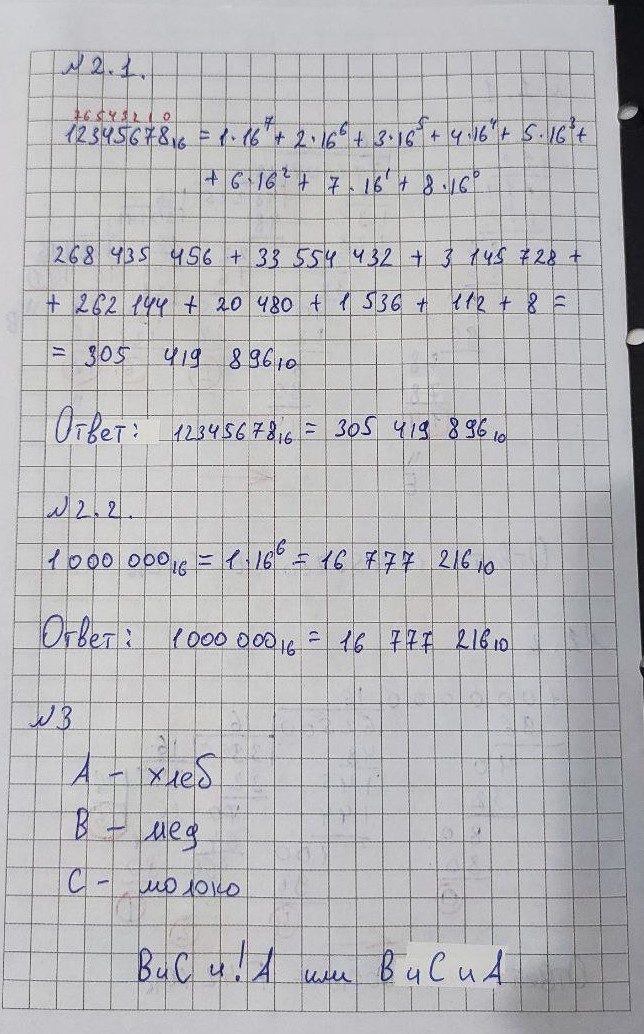 №2.1.
76543210
12345678₁₆ = 1·16⁷ + 2·16⁶ + 3·16⁵ + 4·16⁴ + 5·16³ +
+ 6·16² + 7·16¹ + 8·16⁰
268 435 456 + 33 554 432 + 3 145 728 +
+ 262 144 + 20 480 + 1 536 + 112 + 8 =
= 305 419 896₁₀
Ответ: 12345678₁₆ = 305 419 896₁₀
№2.2.
1000 000₁₆ = 1·16⁶ = 16 777 216₁₀
Ответ: 1000 000₁₆ = 16 777 216₁₀
№3
A – хлеб
B – мед
C – молоко
B и C и !A или B и C и A